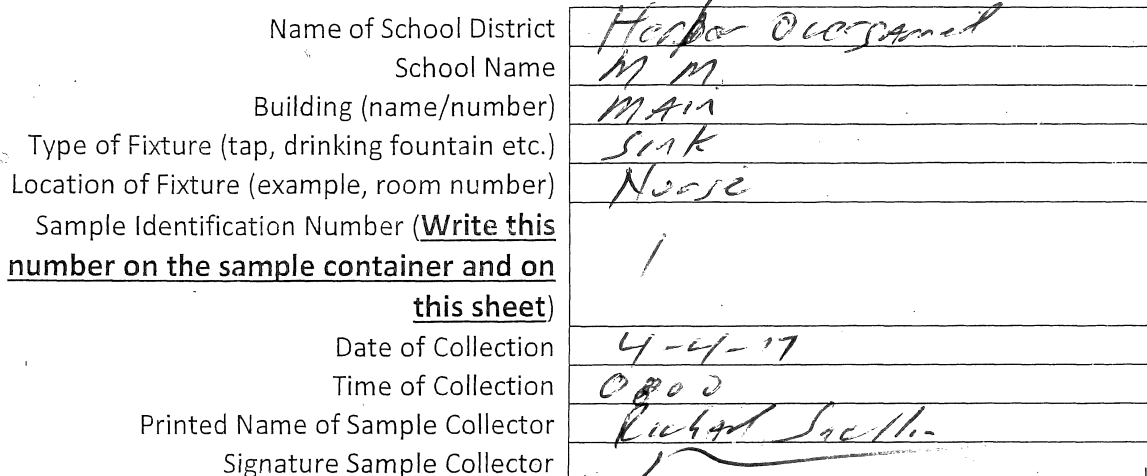 Name of School District Harbor
School Name M M
Building (name/number) MAIN
Type of Fixture (tap, drinking fountain etc.) Sink
Location of Fixture (example, room number) Nurse
Sample Identification Number (Write this
number on the sample container and on 1
this sheet)
Date of Collection 4-4-17
Time of Collection 0800
Printed Name of Sample Collector Richard
Signature Sample Collector